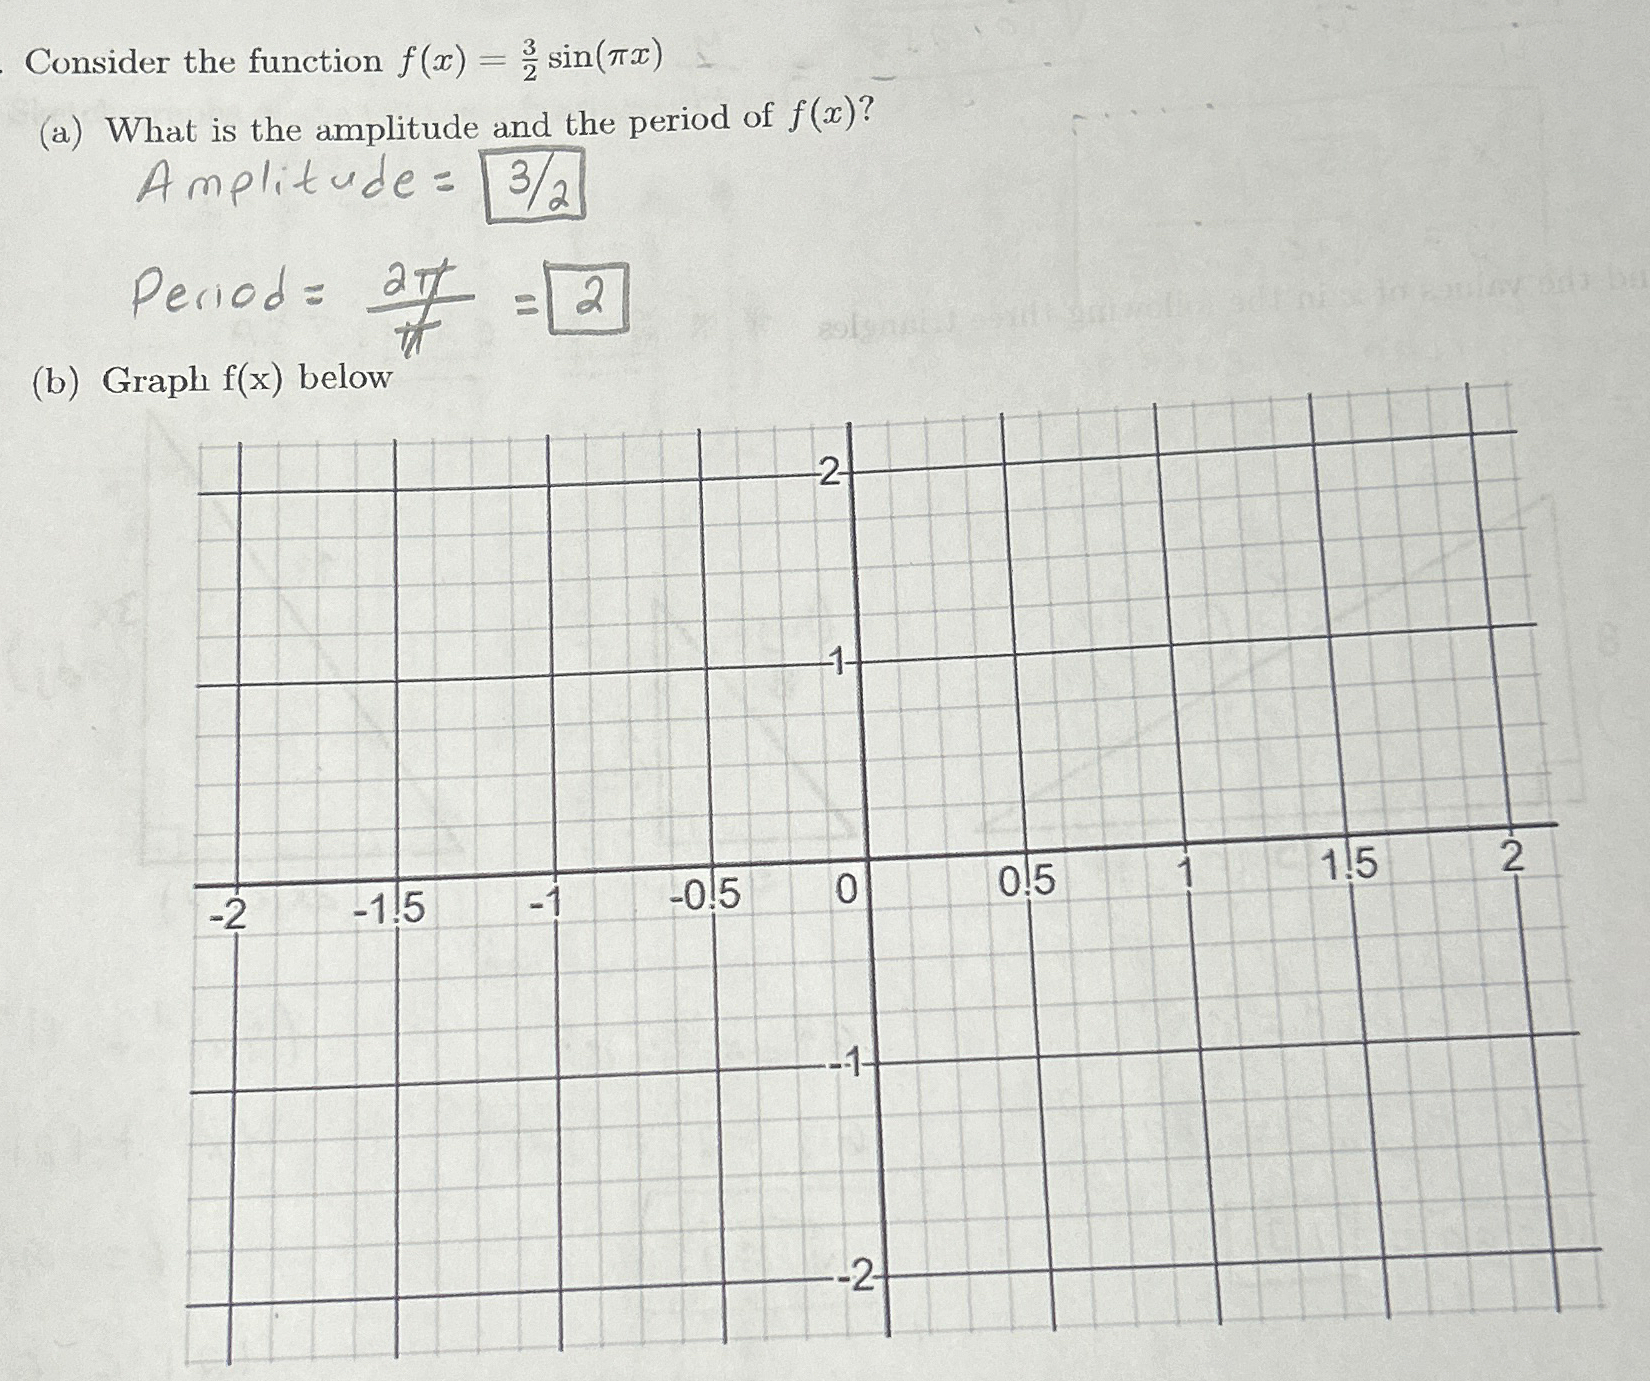 Consider the function f(x) = 3/2 sin(πx)
(a) What is the amplitude and the period of f(x)?
Amplitude = 3/2
Period = 2π/π = 2
(b) Graph f(x) below
2
1
-2 -1.5 -1 -0.5 0 0.5 1 1.5 2
-1
-2